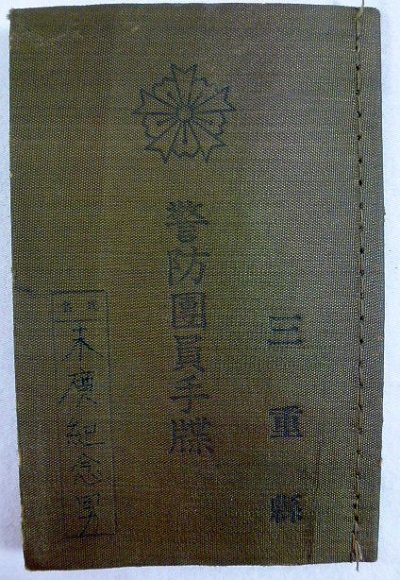 三重縣
警防團員手牒
氏名
末廣紀念男